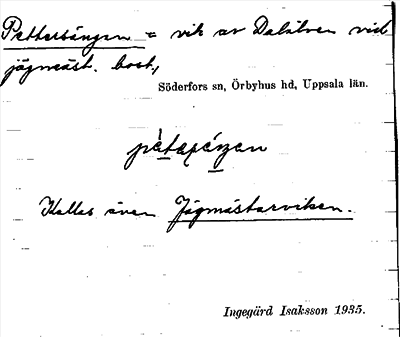 Pettersängen = vik av Dalälven vid
jägmäst. bost.,
Söderfors sn, Örbyhus hd, Uppsala län.
Kallas även Jägmästarviken.
Ingegärd Isaksson 1935.